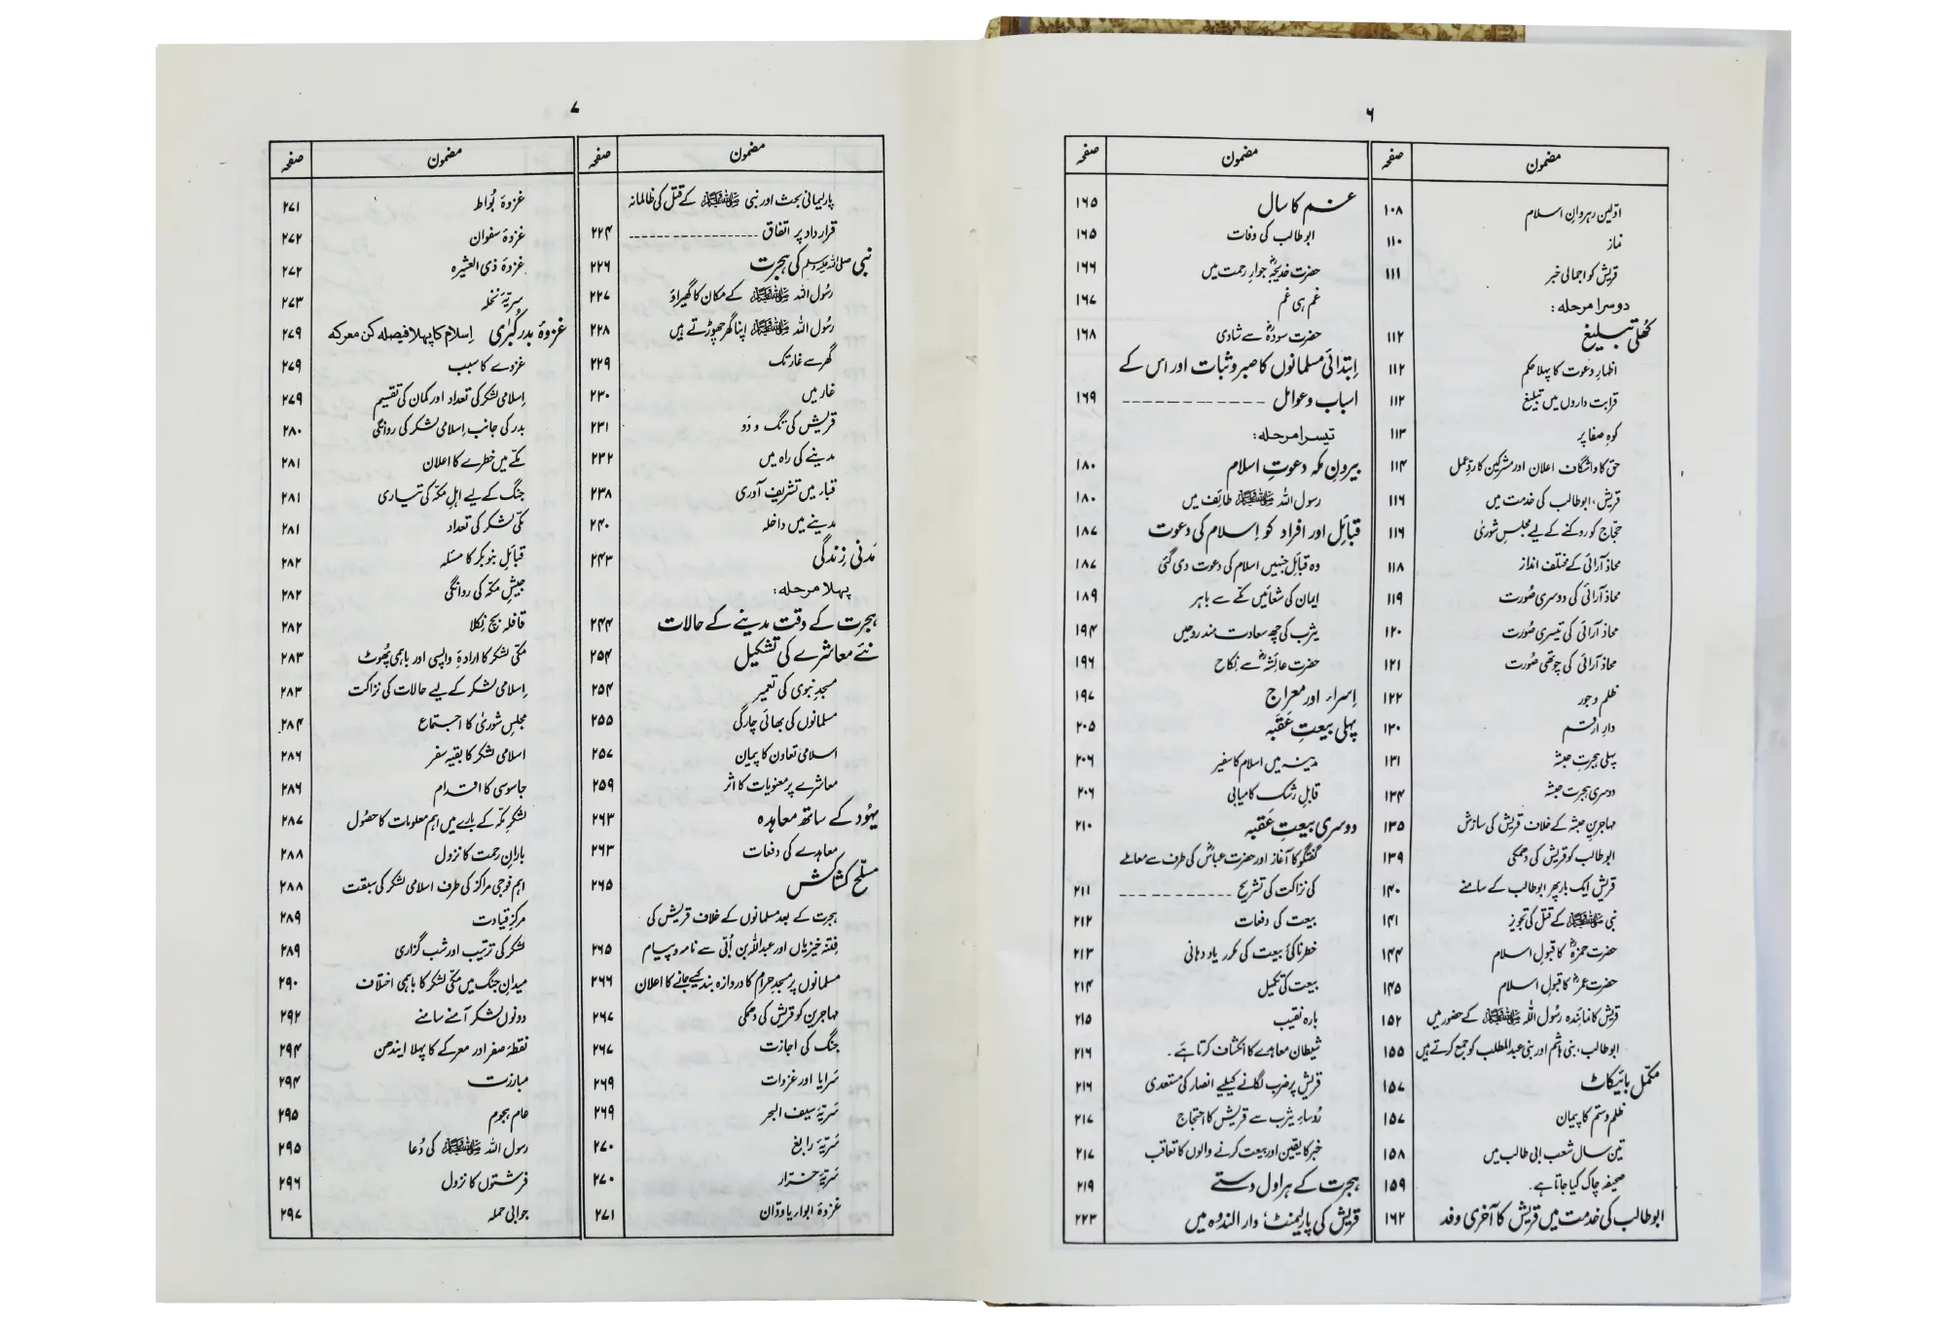 ۶
مضمون صفحہ
اوّلین رہروانِ اسلام ۱۰۸
نماز ۱۱۰
قریش کو اجمالی خبر ۱۱۱
دوسرا مرحلہ:
کھلی تبلیغ ۱۱۲
اظہارِ دعوت کا پہلا حکم ۱۱۲
قرابت داروں میں تبلیغ ۱۱۲
کوہِ صفا پر ۱۱۳
حق کا واشگاف اعلان اور مشرکین کا ردِّعمل ۱۱۴
قریش، ابوطالب کی خدمت میں ۱۱۶
حجّاج کو روکنے کے لیے مجلسِ شوریٰ ۱۱۶
محاذ آرائی کے مختلف انداز ۱۱۸
محاذ آرائی کی دوسری صُورت ۱۱۹
محاذ آرائی کی تیسری صُورت ۱۲۰
محاذ آرائی کی چوتھی صُورت ۱۲۱
ظلم و جور ۱۲۲
دارِ ارقم ۱۳۰
پہلی ہجرتِ حبشہ ۱۳۱
دوسری ہجرتِ حبشہ ۱۳۴
مہاجرینِ حبشہ کے خلاف قریش کی سازش ۱۳۵
ابوطالب کو قریش کی دھمکی ۱۳۹
قریش ایک بار پھر ابوطالب کے سامنے ۱۴۰
نبی ﷺ کے قتل کی تجویز ۱۴۱
حضرت حمزہؓ کا قبولِ اسلام ۱۴۴
حضرت عمرؓ کا قبولِ اسلام ۱۴۵
قریش کا نمائندہ رسُول اللہ ﷺ کے حضور میں ۱۵۲
ابوطالب، بنی ہاشم اور بنی عبدالمطلب کو جمع کرتے ہیں ۱۵۵
مکمّل بائیکاٹ ۱۵۷
ظلم و ستم کا پیمان ۱۵۷
تین سال شعب ابی طالب میں ۱۵۸
صحیفہ چاک کیا جاتا ہے۔ ۱۵۹
ابوطالب کی خدمت میں قریش کا آخری وفد ۱۶۲
مضمون صفحہ
غم کا سال ۱۶۵
ابوطالب کی وفات ۱۶۵
حضرت خدیجہؓ جوارِ رحمت میں ۱۶۶
غم ہی غم ۱۶۷
حضرت سودہؓ سے شادی ۱۶۸
اِبتدائی مسلمانوں کا صبر و ثبات اور اس کے
اسباب و عوامل ۱۶۹
تیسرا مرحلہ:
بیرونِ مکہ دعوتِ اسلام ۱۸۰
رسول اللہ ﷺ طائف میں ۱۸۰
قبائل اور افراد کو اِسلام کی دعوت ۱۸۷
وہ قبائل جنہیں اسلام کی دعوت دی گئی ۱۸۷
ایمان کی شعائیں مکّے سے باہر ۱۸۹
یثرب کی چھ سعادت مند روحیں ۱۹۴
حضرت عائشہؓ سے نکاح ۱۹۶
اِسراء اور معراج ۱۹۷
پہلی بیعتِ عَقَبہ ۲۰۵
مدینہ میں اسلام کا سفیر ۲۰۶
قابلِ رشک کامیابی ۲۰۶
دوسری بیعتِ عَقبہ ۲۱۰
گفتگو کا آغاز اور حضرت عباسؓ کی طرف سے معاملے
کی نزاکت کی تشریح ۲۱۱
بیعت کی دفعات ۲۱۲
خطرناکئ بیعت کی مکرر یاد دہانی ۲۱۳
بیعت کی تکمیل ۲۱۴
بارہ نقیب ۲۱۵
شیطان معاہدے کا انکشاف کرتا ہے۔ ۲۱۶
قریش پر ضرب لگانے کیلیے انصار کی مستعدی ۲۱۶
رُوساءِ یثرب سے قریش کا احتجاج ۲۱۷
خبر کا یقین اور بیعت کرنے والوں کا تعاقب ۲۱۷
ہجرت کے ہراول دستے ۲۱۹
قریش کی پارلیمنٹ، دار الندوہ میں ۲۲۳
۷
مضمون صفحہ
پارلیمانی بحث اور نبی ﷺ کے قتل کی ظالمانہ
قرارداد پر اتفاق ۲۲۴
نبی صلی اللہ علیہ وسلم کی ہجرت ۲۲۶
رسُول اللہ ﷺ کے مکان کا گھیراؤ ۲۲۷
رسُول اللہ ﷺ اپنا گھر چھوڑتے ہیں ۲۲۸
گھر سے غار تک ۲۲۹
غار میں ۲۳۰
قریش کی تگ و دَو ۲۳۱
مدینے کی راہ میں ۲۳۲
قباء میں تشریف آوری ۲۳۸
مدینے میں داخلہ ۲۴۰
مَدنی زِندگی ۲۴۳
پہلا مرحلہ:
ہجرت کے وقت مدینے کے حالات ۲۴۴
نئے معاشرے کی تشکیل ۲۵۴
مسجدِ نبوی کی تعمیر ۲۵۴
مسلمانوں کی بھائی چارگی ۲۵۵
اسلامی تعاون کا پیمان ۲۵۷
معاشرے پر معنویات کا اثر ۲۵۹
یہُود کے ساتھ معاہدہ ۲۶۳
معاہدے کی دفعات ۲۶۳
مسلّح کشاکش ۲۶۵
ہجرت کے بعد مسلمانوں کے خلاف قریش کی
فتنہ خیزیاں اور عبداللہ بن اُبَی سے نامہ و پیام ۲۶۵
مسلمانوں پر مسجدِ حرام کا دروازہ بند کیے جانے کا اعلان ۲۶۶
مہاجرین کو قریش کی دھمکی ۲۶۷
جنگ کی اجازت ۲۶۷
سَرایا اور غزوات ۲۶۹
سَریّۂ سیف البحر ۲۶۹
سَریّۂ رابغ ۲۷۰
سَریّۂ خرّار ۲۷۰
غزوۂ ابواء یا ودّان ۲۷۱
مضمون صفحہ
غزوۂ بُواط ۲۷۱
غزوۂ سفوان ۲۷۲
غزوۂ ذی العشیرہ ۲۷۲
سریّۂ نخلہ ۲۷۳
غزوۂ بدر کُبریٰ اِسلام کا پہلا فیصلہ کن معرکہ ۲۷۹
غزوے کا سبب ۲۷۹
اِسلامی لشکر کی تعداد اور کمان کی تقسیم ۲۷۹
بدر کی جانب اِسلامی لشکر کی روانگی ۲۸۰
مکّے میں خطرے کا اعلان ۲۸۱
جنگ کے لیے اہلِ مکّہ کی تیاری ۲۸۱
مکّی لشکر کی تعداد ۲۸۱
قبائلِ بنو بکر کا مسئلہ ۲۸۲
جیشِ مکّہ کی روانگی ۲۸۲
قافلہ بچ نِکلا ۲۸۲
مکّی لشکر کا ارادۂ واپسی اور باہمی پھُوٹ ۲۸۳
اِسلامی لشکر کے لیے حالات کی نزاکت ۲۸۳
مجلسِ شوریٰ کا اجتماع ۲۸۴
اسلامی لشکر کا بقیہ سفر ۲۸۶
جاسوسی کا اقدام ۲۸۶
لشکرِ مکّہ کے بارے میں اہم معلومات کا حصُول ۲۸۷
بارانِ رحمت کا نزول ۲۸۸
اہم فوجی مراکز کی طرف اسلامی لشکر کی سبقت ۲۸۸
مرکزِ قیادت ۲۸۹
لشکر کی ترتیب اور شب گزاری ۲۸۹
میدانِ جنگ میں مکّی لشکر کا باہمی اختلاف ۲۹۰
دونوں لشکر آمنے سامنے ۲۹۲
نقطۂ صفر اور معرکے کا پہلا ایندھن ۲۹۴
مبارزت ۲۹۴
عام ہجوم ۲۹۵
رسول اللہ ﷺ کی دُعا ۲۹۵
فرشتوں کا نزول ۲۹۶
جوابی حملہ ۲۹۷